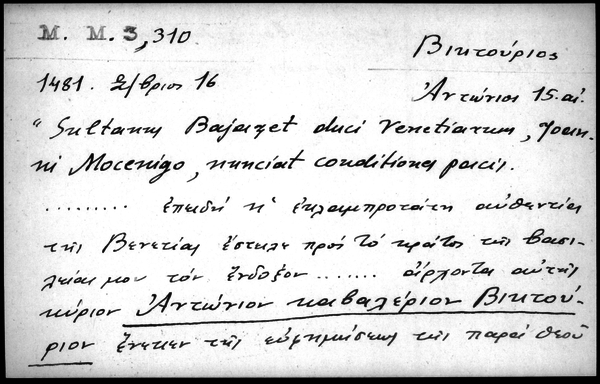 M. M. 3, 310
Βικτούριος
1481. 7/βριος 16
Ἀντώνιος 15. αἰ.
"Sultanus Bajazet duci Venetiarum, Joan-
ni Mocenigo, nunciat conditiones pacis.
......... ἐπειδὴ ἡ ἐκλαμπροτάτη αὐθεντία
τῆς Βενετίας ἔστειλε πρὸς τὸ κράτος τῆς βασι-
λείας μου τὸν ἔνδοξον ....... ἄρχοντα αὐτῆς
κύριον Ἀντώνιον καβαλέριον Βικτού-
ριον ἕνεκεν τῆς τῆς παρὰ θεοῦ